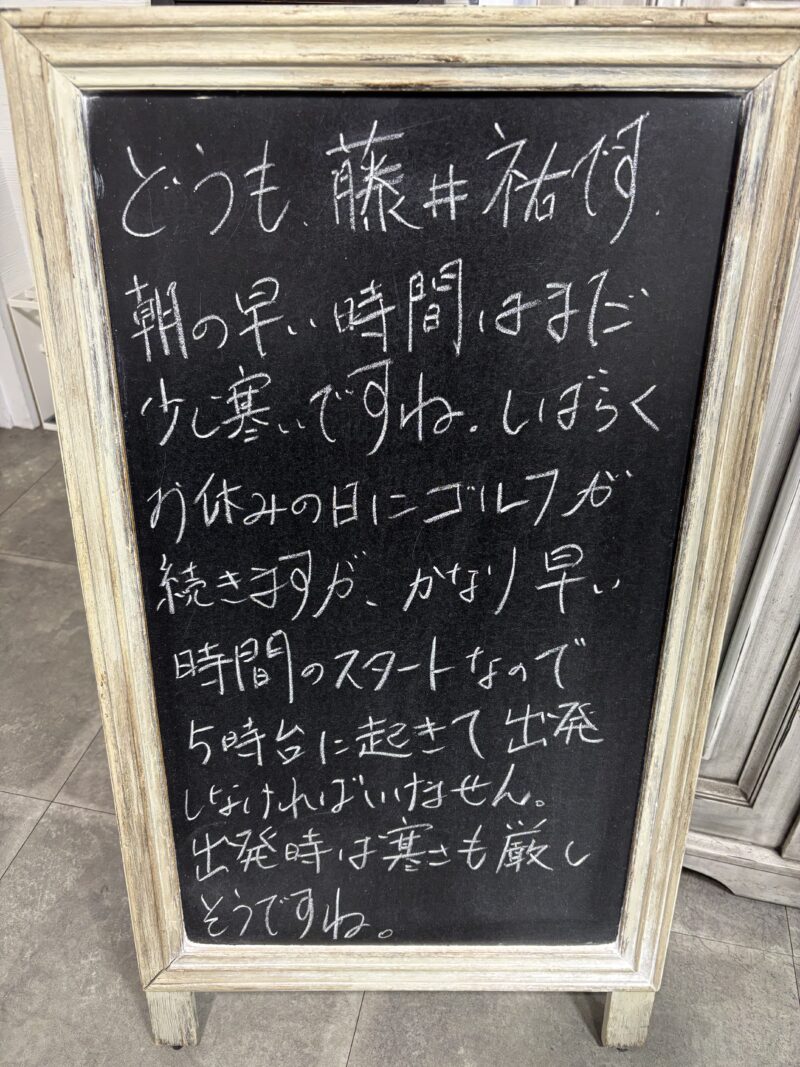 どうも、藤井祐です.
朝の早い時間はまだ
少し寒いですね。しばらく
お休みの日にゴルフが
続きますが、かなり早い
時間のスタートなので
5時台に起きて出発
しなければいけません。
出発時は寒さも厳し
そうですね。